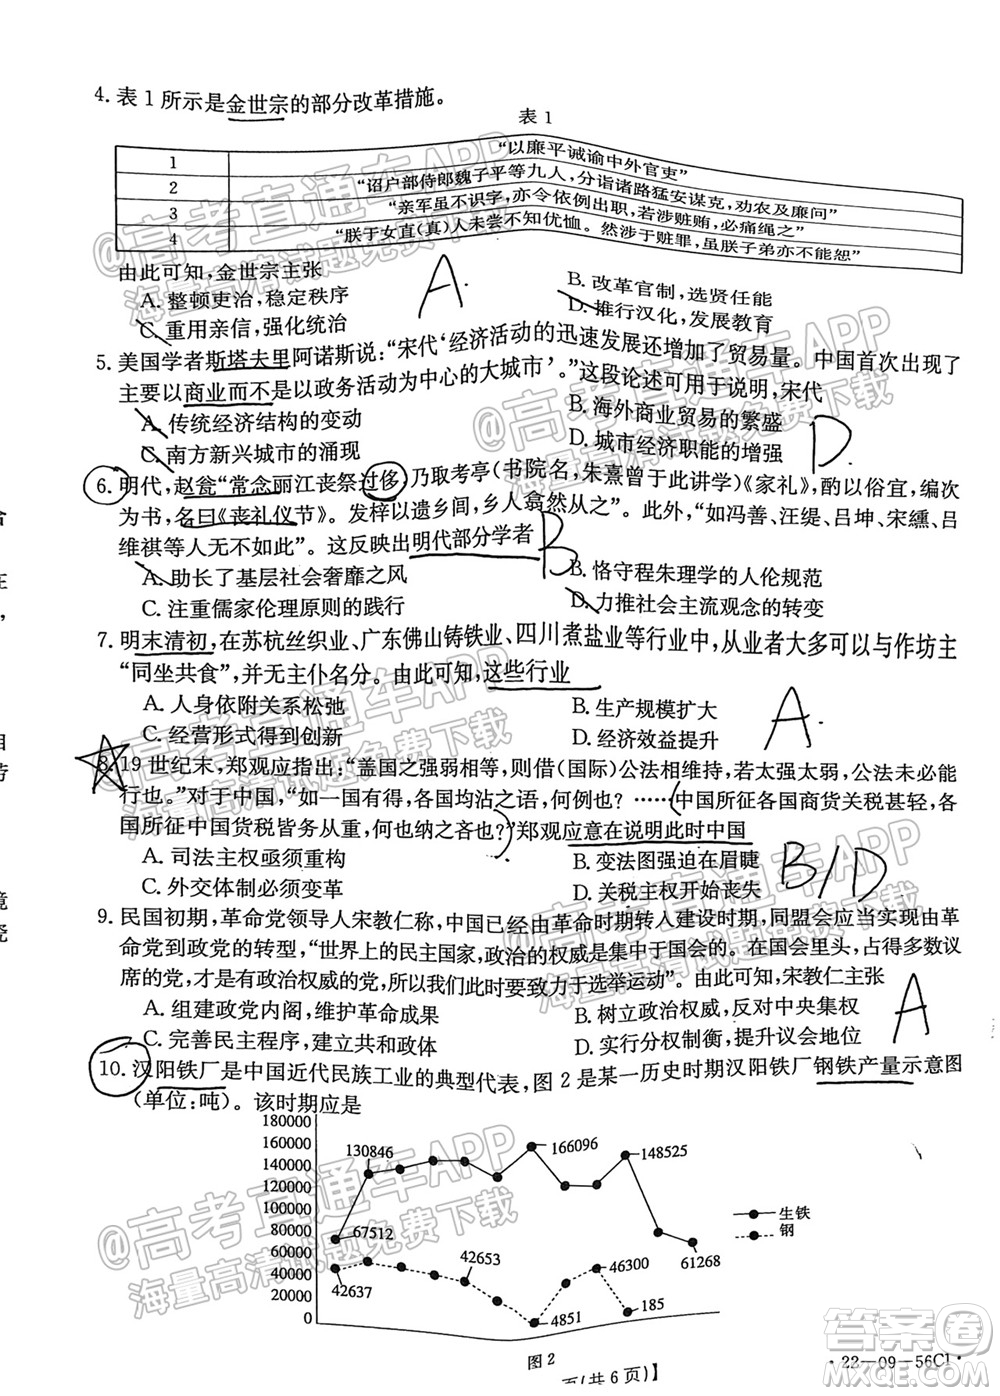 4. 表1所示是金世宗的部分改革措施。
表1
1 “以廉平诫谕中外官吏”
2 “诏户部侍郎魏子平等九人，分诣诸路猛安谋克，劝农及廉问”
3 “亲军虽不识字，亦令依例出职，若涉赃贿，必痛绳之”
4 “朕于女直(真)人未尝不知优恤。然涉于赃罪，虽朕子弟亦不能恕”
由此可知，金世宗主张
A. 整顿吏治，稳定秩序 B. 改革官制，选贤任能
C. 重用亲信，强化统治 D. 推行汉化，发展教育
A
5. 美国学者斯塔夫里阿诺斯说：“宋代‘经济活动的迅速发展还增加了贸易量。中国首次出现了
主要以商业而不是以政务活动为中心的大城市’。”这段论述可用于说明，宋代
A. 传统经济结构的变动 B. 海外商业贸易的繁盛
C. 南方新兴城市的涌现 D. 城市经济职能的增强
D
6. 明代，赵瓮“常念丽江丧祭过侈，乃取考亭(书院名，朱熹曾于此讲学)《家礼》，酌以俗宜，编次
为书，名曰《丧礼仪节》。发梓以遗乡间，乡人翕然从之”。此外，“如冯善、汪缇、吕坤、宋纁、吕
维祺等人无不如此”。这反映出明代部分学者
A. 助长了基层社会奢靡之风 B. 恪守程朱理学的人伦规范
C. 注重儒家伦理原则的践行 D. 力推社会主流观念的转变
B
7. 明末清初，在苏杭丝织业、广东佛山铸铁业、四川煮盐业等行业中，从业者大多可以与作坊主
“同坐共食”，并无主仆名分。由此可知，这些行业
A. 人身依附关系松弛 B. 生产规模扩大
C. 经营形式得到创新 D. 经济效益提升
A.
8. 19世纪末，郑观应指出：“盖国之强弱相等，则借(国际)公法相维持，若太强太弱，公法未必能
行也。”对于中国，“如一国有利，各国均沾之语，何例也？……中国所征各国商货关税甚轻，各
国所征中国货税皆务从重，何也纳之者也？”郑观应意在说明此时中国
A. 司法主权亟须恢复 B. 变法图强迫在眉睫
C. 外交体制必须变革 D. 关税主权开始丧失
B/D
9. 民国初期，革命党领导人宋教仁称，中国已经由革命时期转入建设时期，同盟会应当实现由革
命党到政党的转型，“世界上的民主国家，政治的权威是集中于国会的。在国会里头，占得多数议
席的党，才是有政治权威的党，所以我们此时要致力于选举运动”。由此可知，宋教仁主张
A. 组建政党内阁，维护革命成果 B. 树立政治权威，反对中央集权
C. 完善民主程序，建立共和政体 D. 实行分权制衡，提升议会地位
A
10. 汉阳铁厂是中国近代民族工业的典型代表，图2是某一历史时期汉阳铁厂钢铁产量示意图
(单位：吨)。该时期应是
180000
160000
140000
120000
100000
80000
60000
40000
20000
0
130846
166096
148525
67512
61268
42637
42653
4851
46300
185
生铁
钢
图2
页(共6页)】
·22－09－56C1·
@高考直通车APP
海量高清试题免费下载
答案卷
MXQE.COM